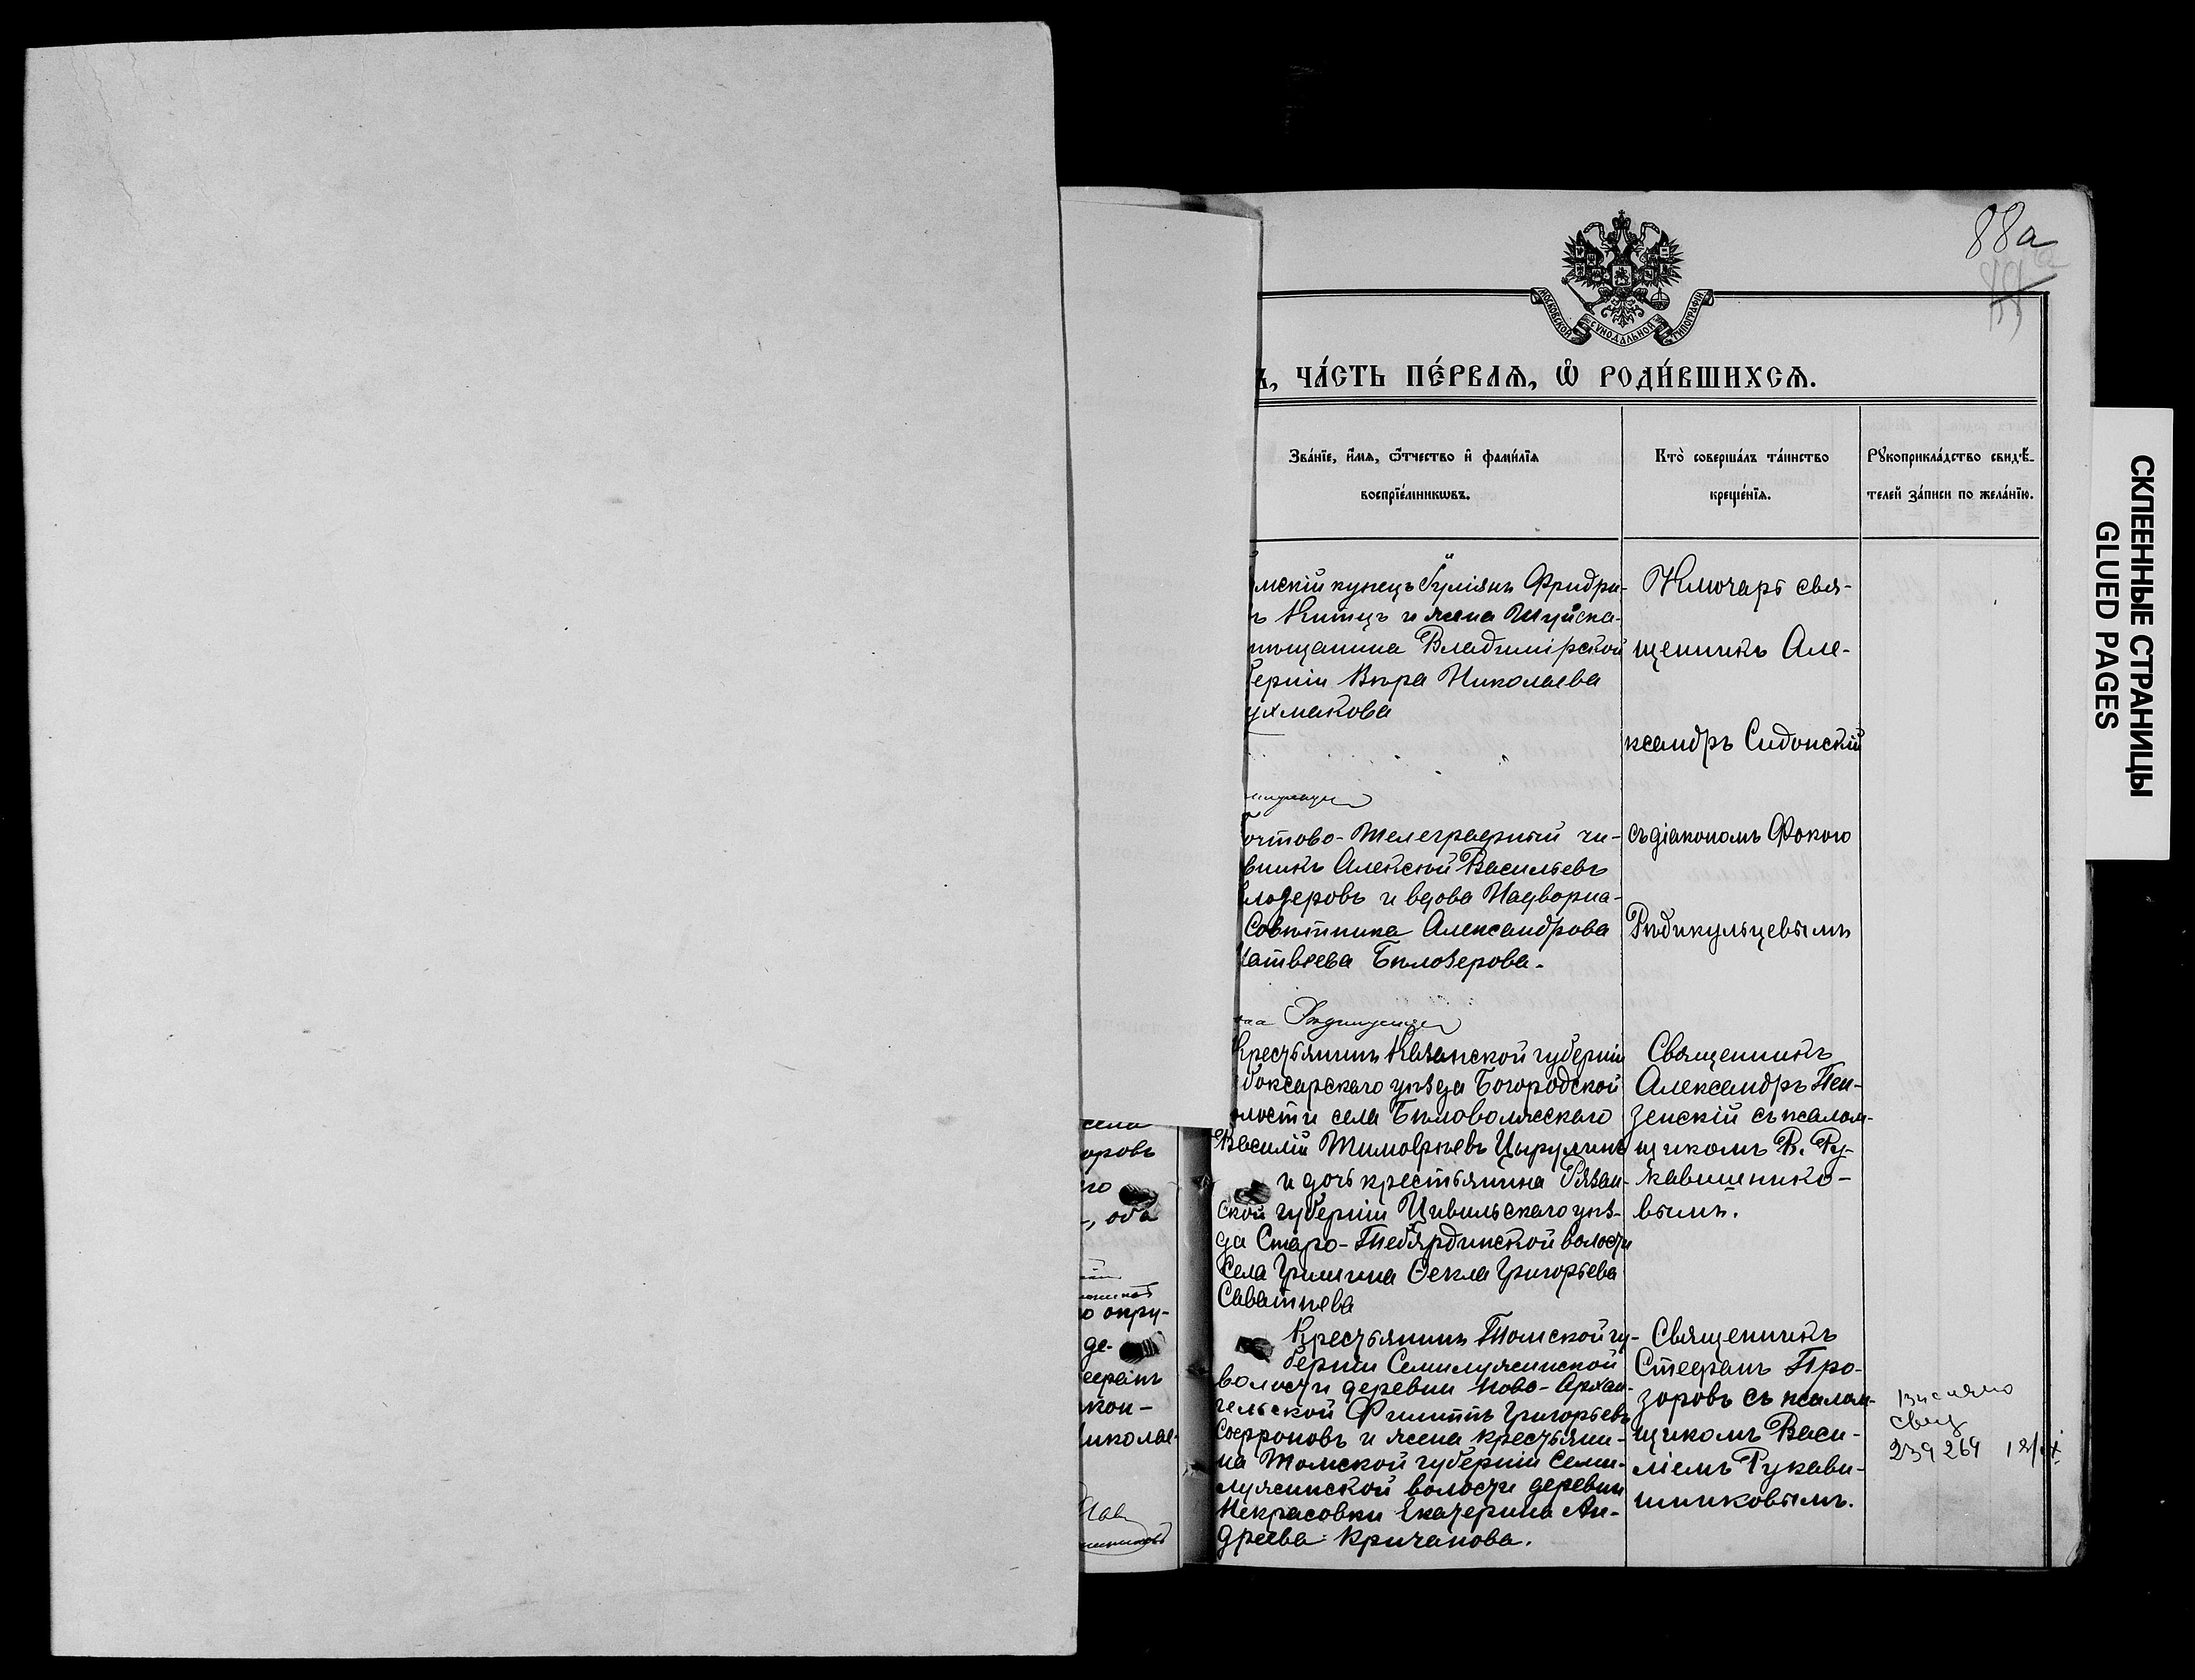 88а
МОСКОВСКОЙ СУНОДАЛЬНОЙ ТИПОГРАФІИ
, ЧА́СТЬ ПЕ́РВАѦ, Ѡ҆ РОДИ́ВШИХСѦ.
Зва́нїе, и҆́мѧ, ѻ҆́тчество и҆ фами́лїѧ
воспрїе́мникѡвъ.
Кто̀ соверша́лъ та́инство
креще́нїѧ.
Рꙋкоприкла́дство свидѣ́-
телей за́писи по жела́нїю.
мскій купецъ Іуліянъ Фридри-
ъ Китцъ и жена Шуйска-
мѣщанина Владимірской
берніи Вѣра Николаева
ухмакова
Ключарь свя-
щенникъ Але-
ксандръ Сидонскій
очтово-Телеграфный чи-
вникъ Алексѣй Васильевъ
ѣлозеровъ и вдова Надворна-
Совѣтника Александрова
Матвѣева Бѣлозерова.
съ діакономъ Фокою
Рѣдикульцевымъ
Крестьянинъ Казанской губерніи
боксарскаго уѣзда Богородской
олости села Бѣловолжскаго
Василій Тимофеевъ Цырулинъ
и дочь крестьянина Рязан-
ской губерніи Цивильскаго уѣз-
да Старо-Тебярдинской волости
села Гришина Ѳекла Григорьева
Саватѣева
Священникъ
Александръ Пен-
зенскій съ псалом-
щикомъ В. Ру-
кавишнико-
вымъ.
Крестьянинъ Томской гу-
берніи Семилужинской
волости деревни Ново-Архан-
гельской Филиппъ Григорьевъ
Софроновъ и жена крестьяни-
на Томской губерніи Семи-
лужинской волости деревни
Некрасовки Екатерина Ан-
дреева Кричанова.
Священникъ
Стефанъ Про-
зоровъ съ псалом-
щикомъ Васи-
ліемъ Рукави-
шниковымъ.
свид
239264
села
оровъ
го
-, оба
о окру-
де-
ефанъ
кон-
николае-
СКЛЕЕННЫЕ СТРАНИЦЫ
GLUED PAGES